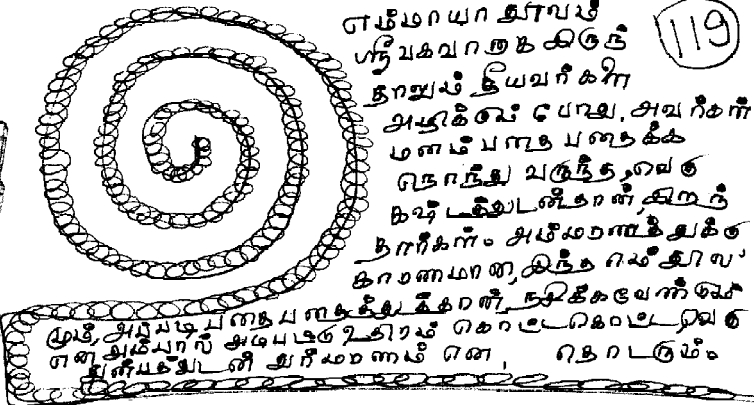 119
எம்மாயா தூலம்
ஸ்ரீ பகவானாக இருந்
தாலும் தீயவர்கள்
அழிக்கும் போது, அவர்கள்
மனம் பதை பதைக்க
நொந்து வருந்த, வெகு
கஷ்டத்துடன்தான், இறந்
தார்கள். அம்மரணத்துக்கு
காரணமான, இந்த எம் தூல
மும், அப்படி பதை பதைத்துத்தான், நசிக்கவேண்டும்
என அம்பால் அடிபட்டு உதிரம் கொட்ட கொட்ட, வெகு
துன்பத்துடன் தர்மமரணம் என, தொடரும்.